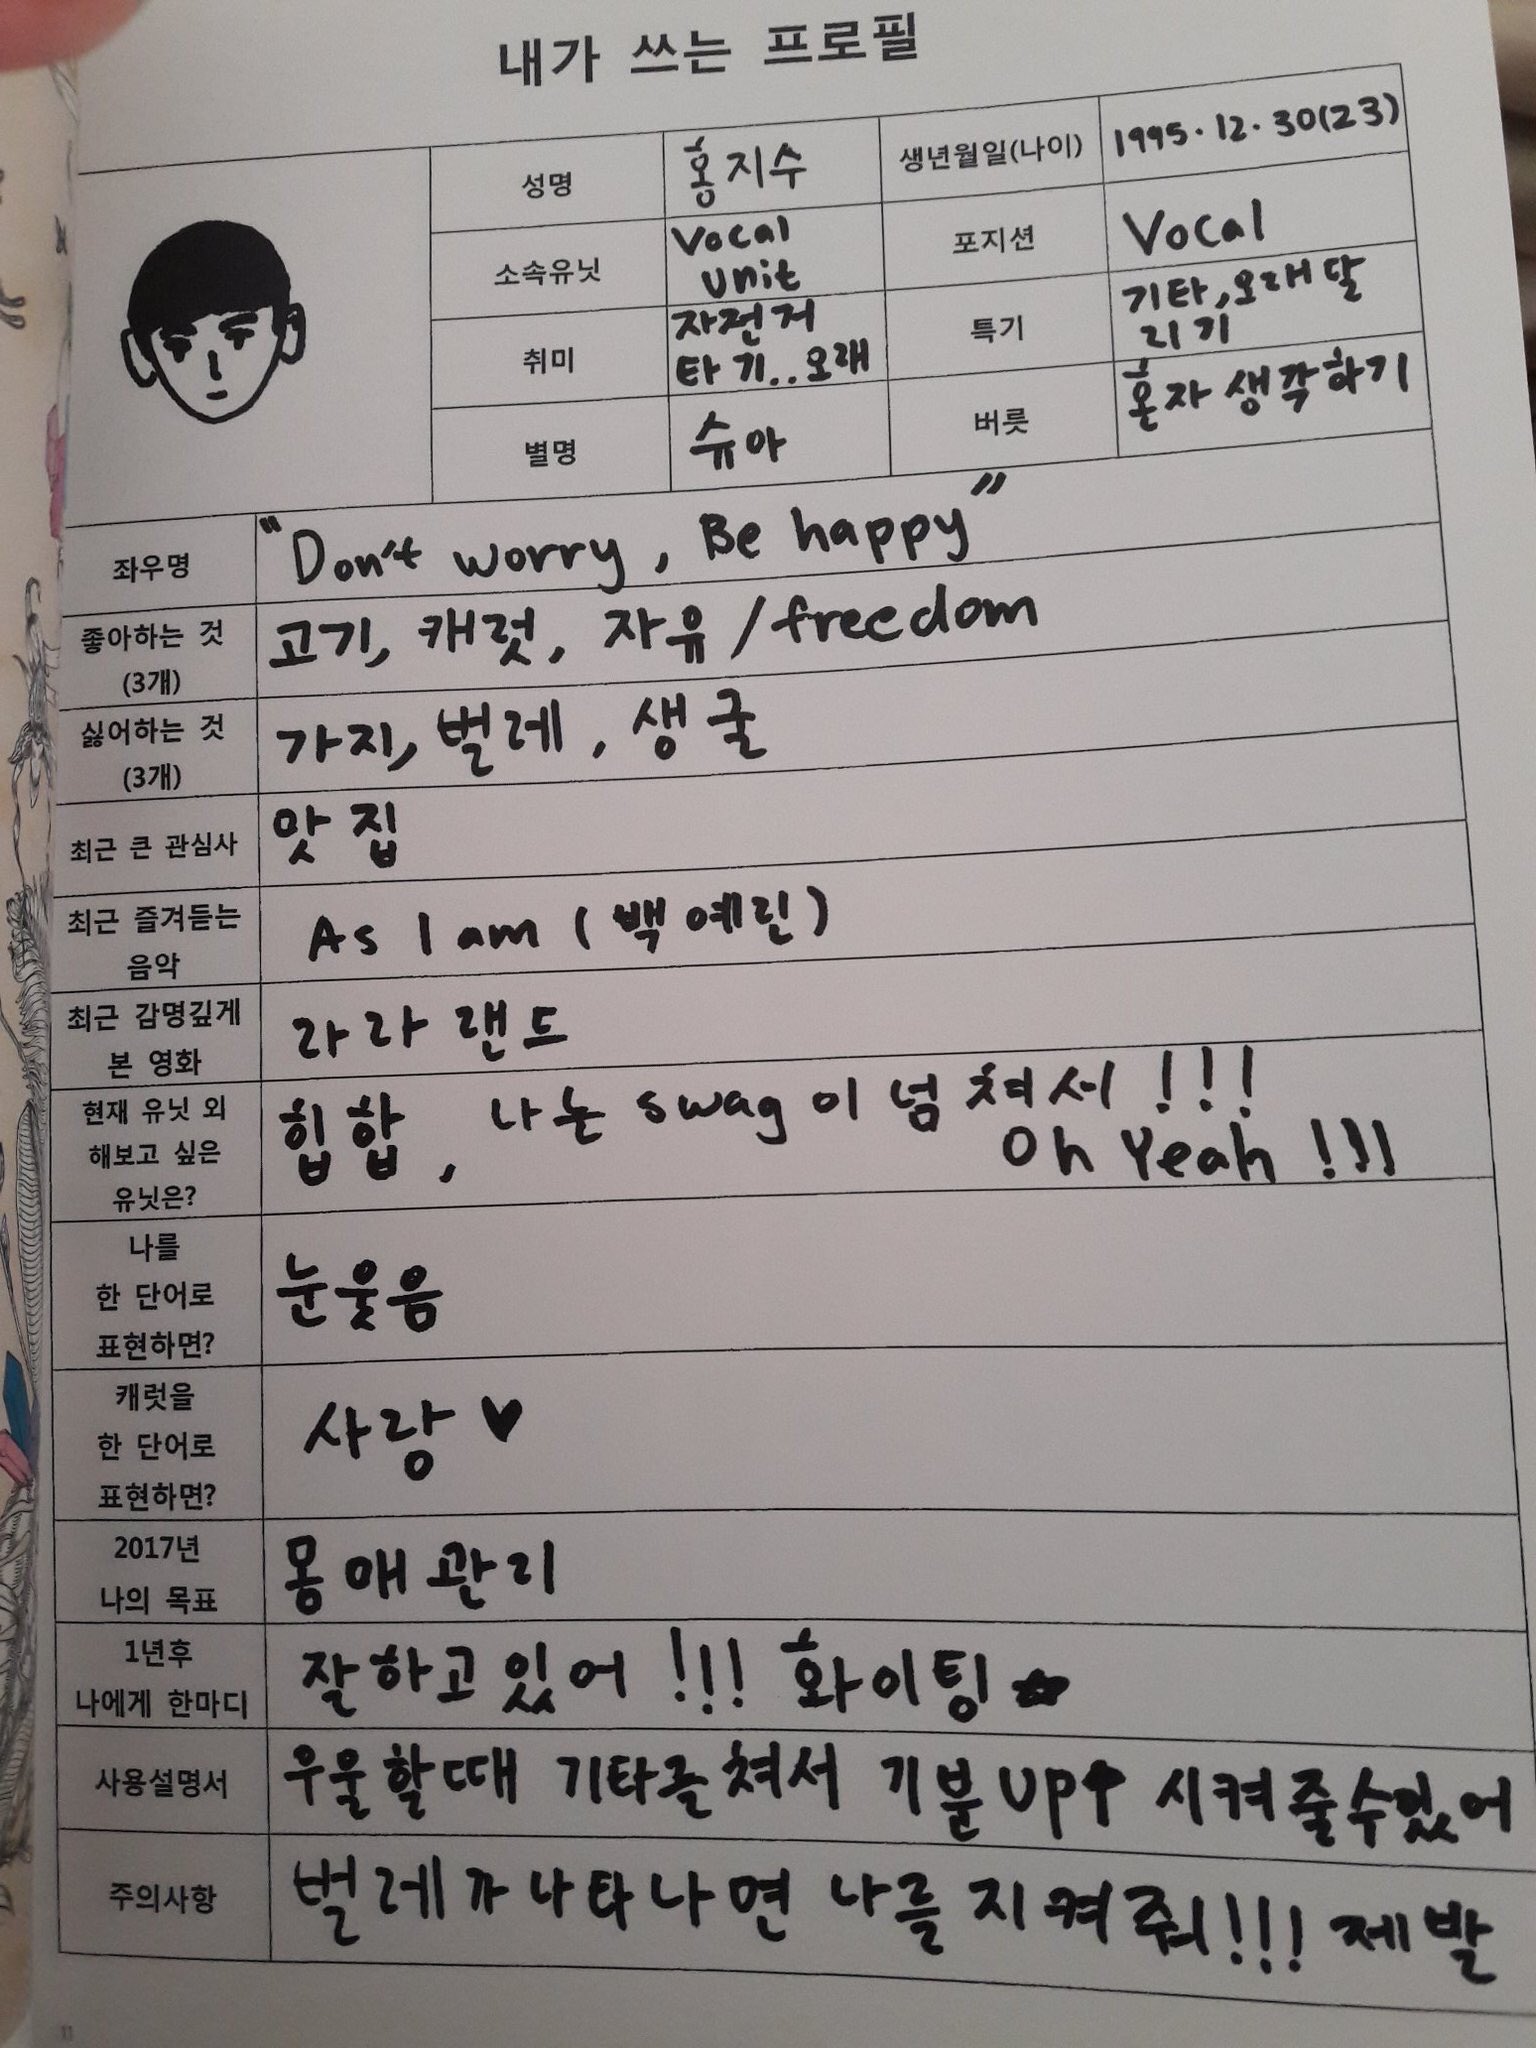 내가 쓰는 프로필
성명
홍지수
생년월일(나이)
1995.12.30(23)
소속유닛
Vocal
unit
포지션
Vocal
취미
자전거
타기..오래
특기
기타,오래달
리기
별명
슈아
버릇
혼자 생각하기
좌우명
"Don't worry, Be happy"
좋아하는 것
(3개)
고기, 캐럿, 자유/freedom
싫어하는 것
(3개)
가지, 벌레, 생굴
최근 큰 관심사
맛집
최근 즐겨듣는
음악
As I am (백예린)
최근 감명깊게
본 영화
라라랜드
현재 유닛 외
해보고 싶은
유닛은?
힙합, 나는 swag이 넘쳐서!!!
Oh Yeah!!!
나를
한 단어로
표현하면?
눈웃음
캐럿을
한 단어로
표현하면?
사랑♥
2017년
나의 목표
몸매관리
1년후
나에게 한마디
잘하고있어!!! 화이팅☆
사용설명서
우울할때 기타를쳐서 기분up↑ 시켜줄수있어
주의사항
벌레가 나타나면 나를 지켜줘!!! 제발
11